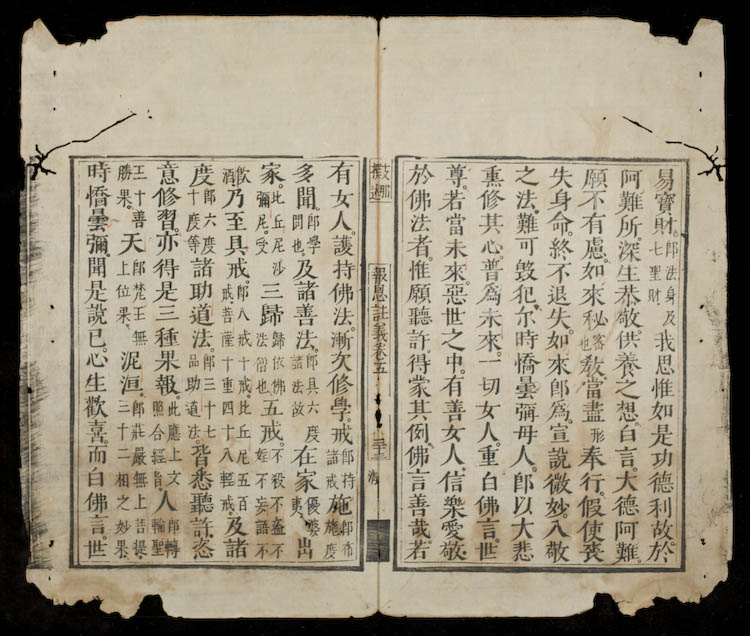 易寶財。即法身及七聖財我思惟如是功德利故。於
阿難所深生恭敬供養之想。白言。大德阿難。
願不有慮。如來秘密也教。當盡形奉行。假使喪
失身命。終不退失。如來即爲。宣說微妙八敬
之法。難可毀犯。尔時憍曇彌母人。即以大悲
熏修其心。普爲未來。一切女人。重白佛言。世
尊。若當未來。惡世之中。有善女人。信樂愛敬。
於佛法者。惟願聽許得蒙其例。佛言善哉。若
支那撰述
報恩註義卷五
有女人。護持佛法。漸次修學戒即持諸戒施即布施度
多聞。即學問也及諸善法。即具六度諸法故在家優婆夷出
家。比丘尼沙彌尼。受三歸歸依佛法僧也五戒。不殺不盜不婬不妄語不
飲酒乃至具戒。即八戒十戒。比丘尼五百戒。菩薩十重四十八輕戒。及諸
度即六度十度等諸助道法即三十七品助道法。皆悉聽許。恣
意修習。亦得是三種果報。此應上文照合經旨人即轉輪聖
王十善勝果。天即梵王無上位果。泥洹。即莊嚴無上菩提。三十二相之妙果
時憍曇彌。聞是說已。心生歡喜。而白佛言。世